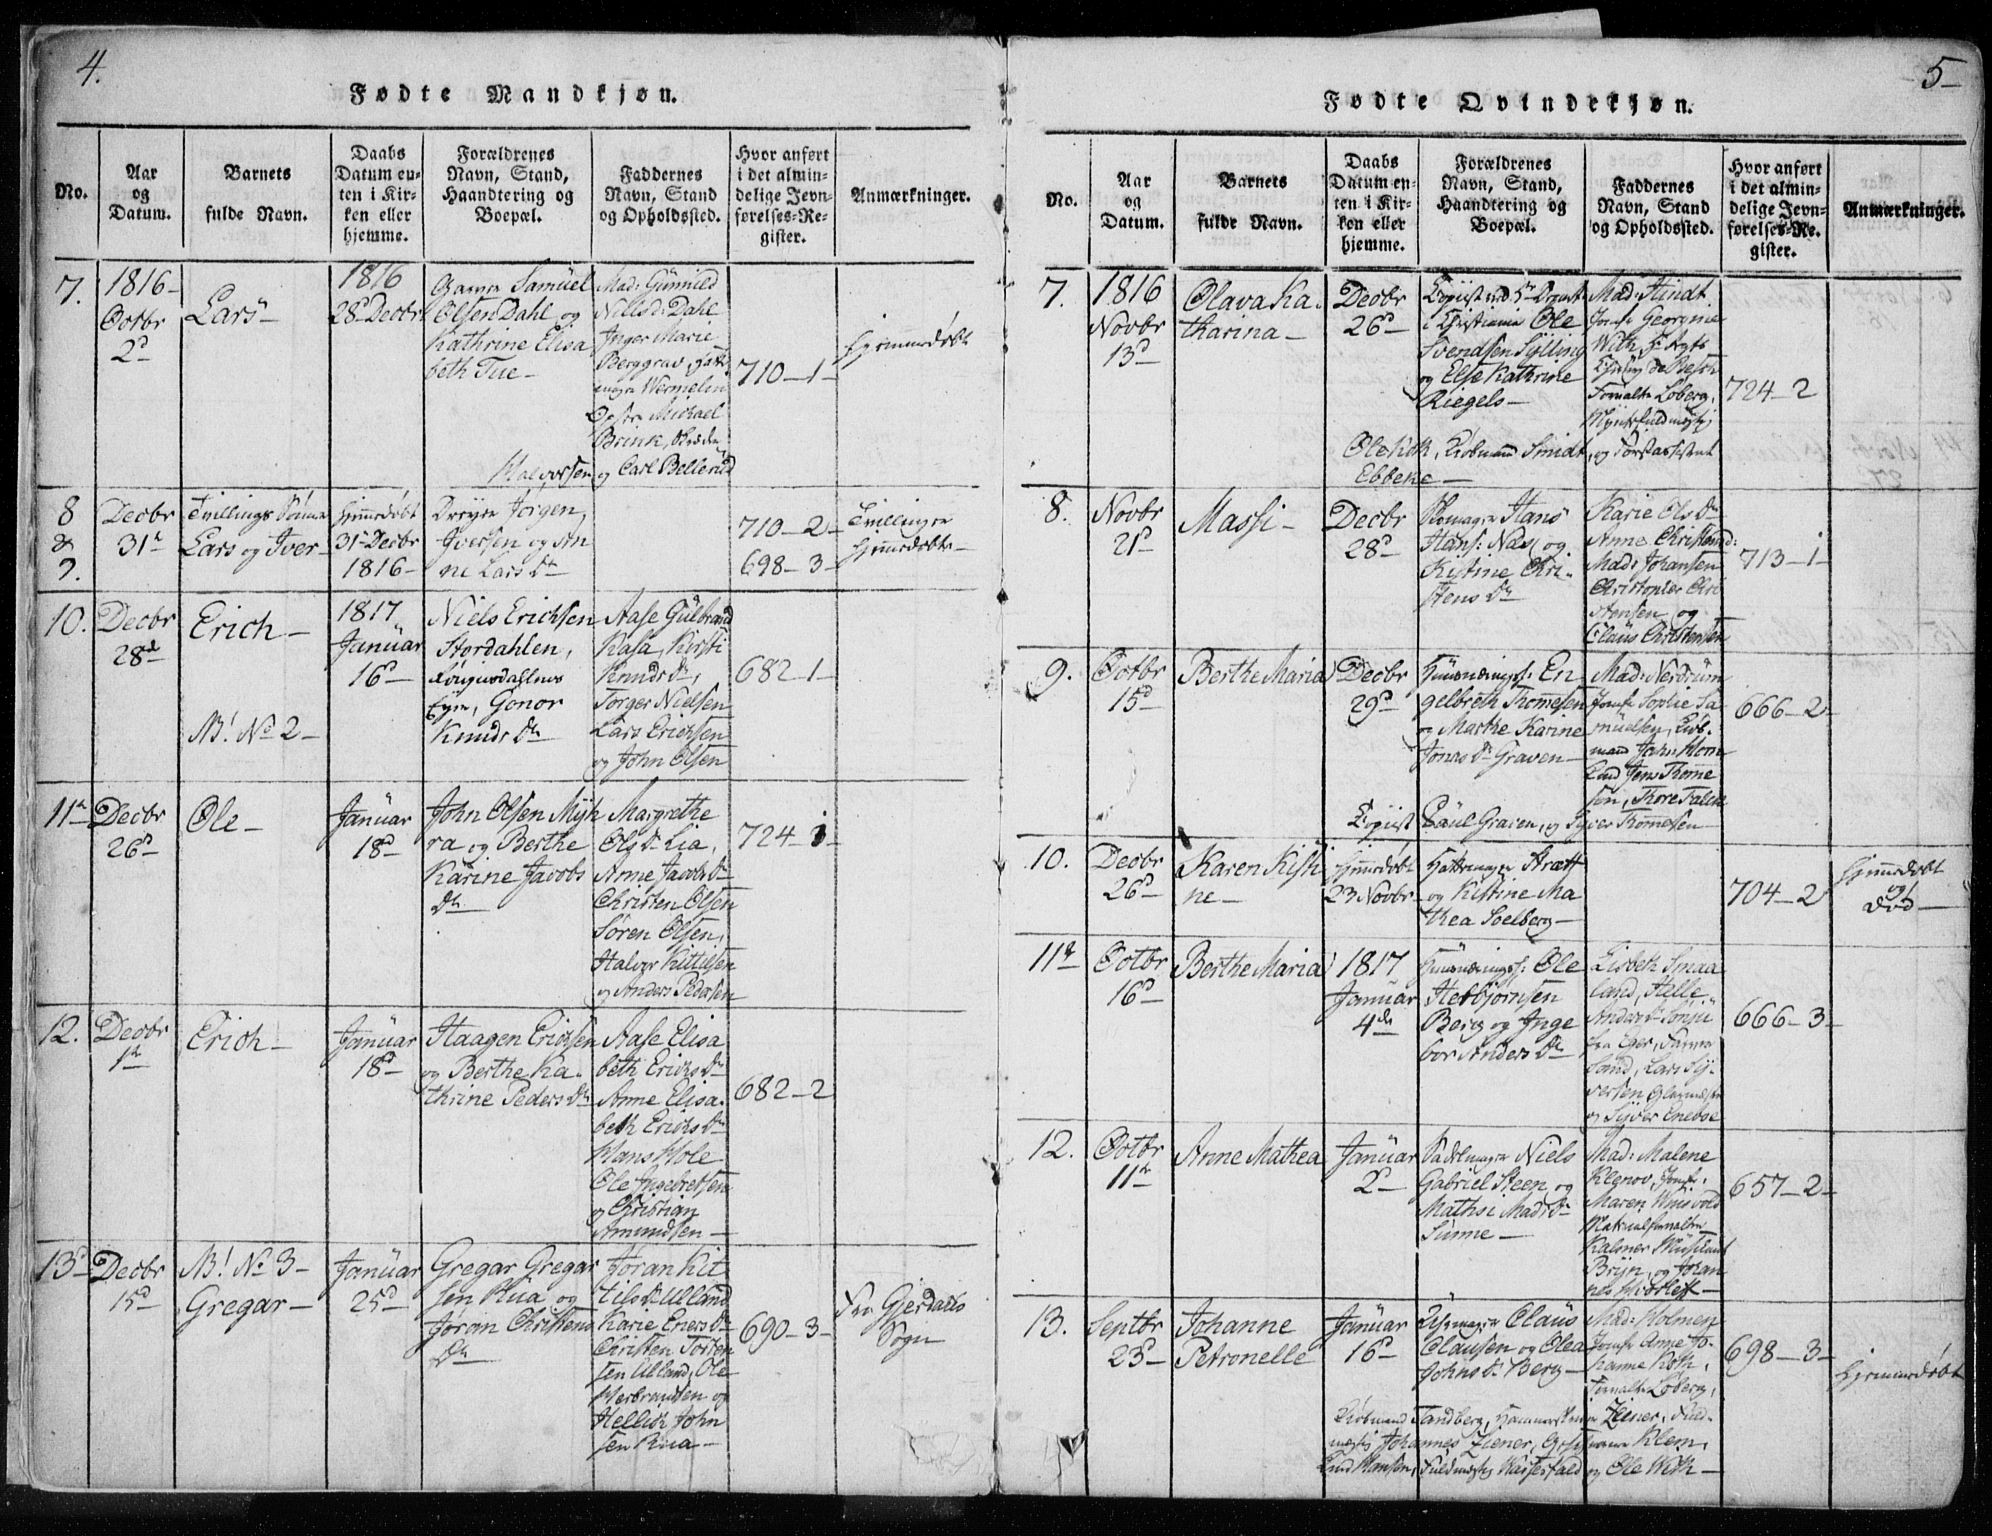 4.
Fødte Mandkjøn.
No.
Aar
og
Datum.
Barnets
fulde Navn.
Daabs
Datum en-
ten i Kir-
ken eller
hjemme.
Forældrenes
Navn, Stand,
Haandtering og
Boepæl.
Faddernes
Navn, Stand
og Opholdssted.
Hvor anført
i det almin-
delige Jevn-
førelses-Re-
gister.
Anmærkninger.
7.
1816-
Octbr
2d
Lars-
1816
28d Decbr
Samüel
Olsen Dahl og
Kathrine Elisa
beth Tue-
Mad: Gunnild
Nilsd: Dahl
Inger Marie
Berggrav,
Michael
Brink,
Halvorsen og Carl Bellerud
710-1-
Hjemmedøbt
8
&
9.
Decbr
31te
Tvillings Sønner
Lars og Iver-
Hjemmedøbt
31te Decbr
1816-
Jørgen
Iversen og An
ne Lars Dtr
710-2-
698-3-
Tvillinger
Hjemmedøbte-
10.
Decbr
28de
Erich-
NB! No 2-
1817
Januar
16d
Niels Erichsen
Stordahlen,
Gonor
Knuds Dtr
Aase Gulbrand
Kasa, Kirsti
Knuds Dtr,
Torger Nielsen
Lars Erichsen
og John Olsen
682-1
11te
Decbr
26d
Ole-
Januar
18d
John Olsen Myh
ra og Berthe
Karine Jacobs
Dtr
Margrethe
Ols Dtr Lia,
Anne Jacobs Dtr
Christen Olsen
Søren Olsen,
Halvor Kittilsen
og Anders Pedersen
724-1-
12.
Decbr
1te
Erich-
Januar
18d
Haagen Erichsen
og Berthe Ka-
thrine Peders Dtr
Aase Elisa
beth Erichs Dtr
Anne Elisa-
beth Erichs Dtr
Hans Hole
Ole Ingebretsen
og Christian
Amundsen-
682-2
13d
Decbr
15d
NB! No 3-
Gregar-
Januar
25d
Gregar Gregar
sen Rua og
Jøran Christens
Dtr
Jøran Kit
tils Dtr Ulland
Karie Eners Dtr
Christen Torsten
sen Ulland, Ole
Herbrandsen og
Hellik John
sen Rua-
690-3-
Fra Gjerdahls
Sogn
5-
Fødte Qvindekjøn.
No.
Aar
og
Datum.
Barnets
fulde Navn.
Daabs
Datum en-
ten i Kir-
ken eller
hjemme.
Forældrenes
Navn, Stand,
Haandtering og
Boepæl.
Faddernes
Navn, Stand
og Opholdssted.
Hvor anført
i det almin-
delige Jevn-
førelses-Re-
gister.
Anmærkninger.
7.
1816
Novbr
13d
Olava Ka-
tharina-
Decbr
26d
i Christiania Ole
Svendsen Sylling
og Else Kathrine
Riegels-
Mad: Hindt
Jomfr Georgine
With,
Forvalter Loberg,
Ole Kok, Kiøbmand Smidt, og Forstassistent
Ebbeke-
724-2
8.
Novbr
21d
Massi-
Decbr
28d
Skomager Hans
Hans: Næs og
Kistine Chri-
stens Dtr
Karie Ols Dtr
Anne Christensd:
Mad: Johansen
Christopher Chri
stensen og
Claus Christensen
713-1-
9.
Octbr
15d
Berthe Maria
Decbr
29d
En
gelbreth Thomesen
og Marthe Karine
Jonas Dtr Graven-
Mad: Nerdrum
Jomfr Sophie Sa
muelsen, Kiøb-
mand John Hom
Lind Jens Thome
sen, Thore Falck
Copiist Paul Graven, og Syver Thomesen
666-2-
10.
Decbr
26d
Karen Kisti
ne-
Hjemmedøbt
23 Novbr
Hattemager Strøtt
og Kistine Ma
thea Soelberg-
704-2
Hjemmedøbt
og
død-
11te
Octbr
16d
Berthe Maria
1817
Januar
4de
Ole
Hebbjørnsen
Berg og Inge
bor Anders Dtr
Lisbeth Smaa
land, Helle
Anders Dtr
fra Eger,
Sand, Lars Sy-
versen
og Syver Eneboe
666-3-
12.
Octbr
11te
Anne Mathea
Januar
2d
Sadelmager Niels
Gabriel Steen og
Mathsi Mads Dtr
Sunne-
Mad: Malene
Klenov, Jomfr:
Maren
Materialforvalter
Kalsner Musikant
Bryn, og Johan
nes Hvorlek-
657-2-
13.
Septbr
23d
Johanne
Petronelle
Januar
16d
Claus
Clausen og Olea
Johns Dtr Berg-
Mad: Holmen
Jomfr Anne Jo-
hanne Koth,
Forvalter Loberg,
Kiøbmand Sandberg, Ziener,
Johannes Ziener, Klem,
Lund Hansen, og Ole With-
698-3-
Hjemmedøbt